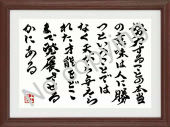 労力することの本当
の意味は人に勝
つということでは
なく天から与えら
れた才能をどこ
まで発展させる
かにある